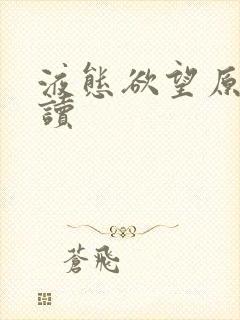 液態欲望原
讀
蒼飛